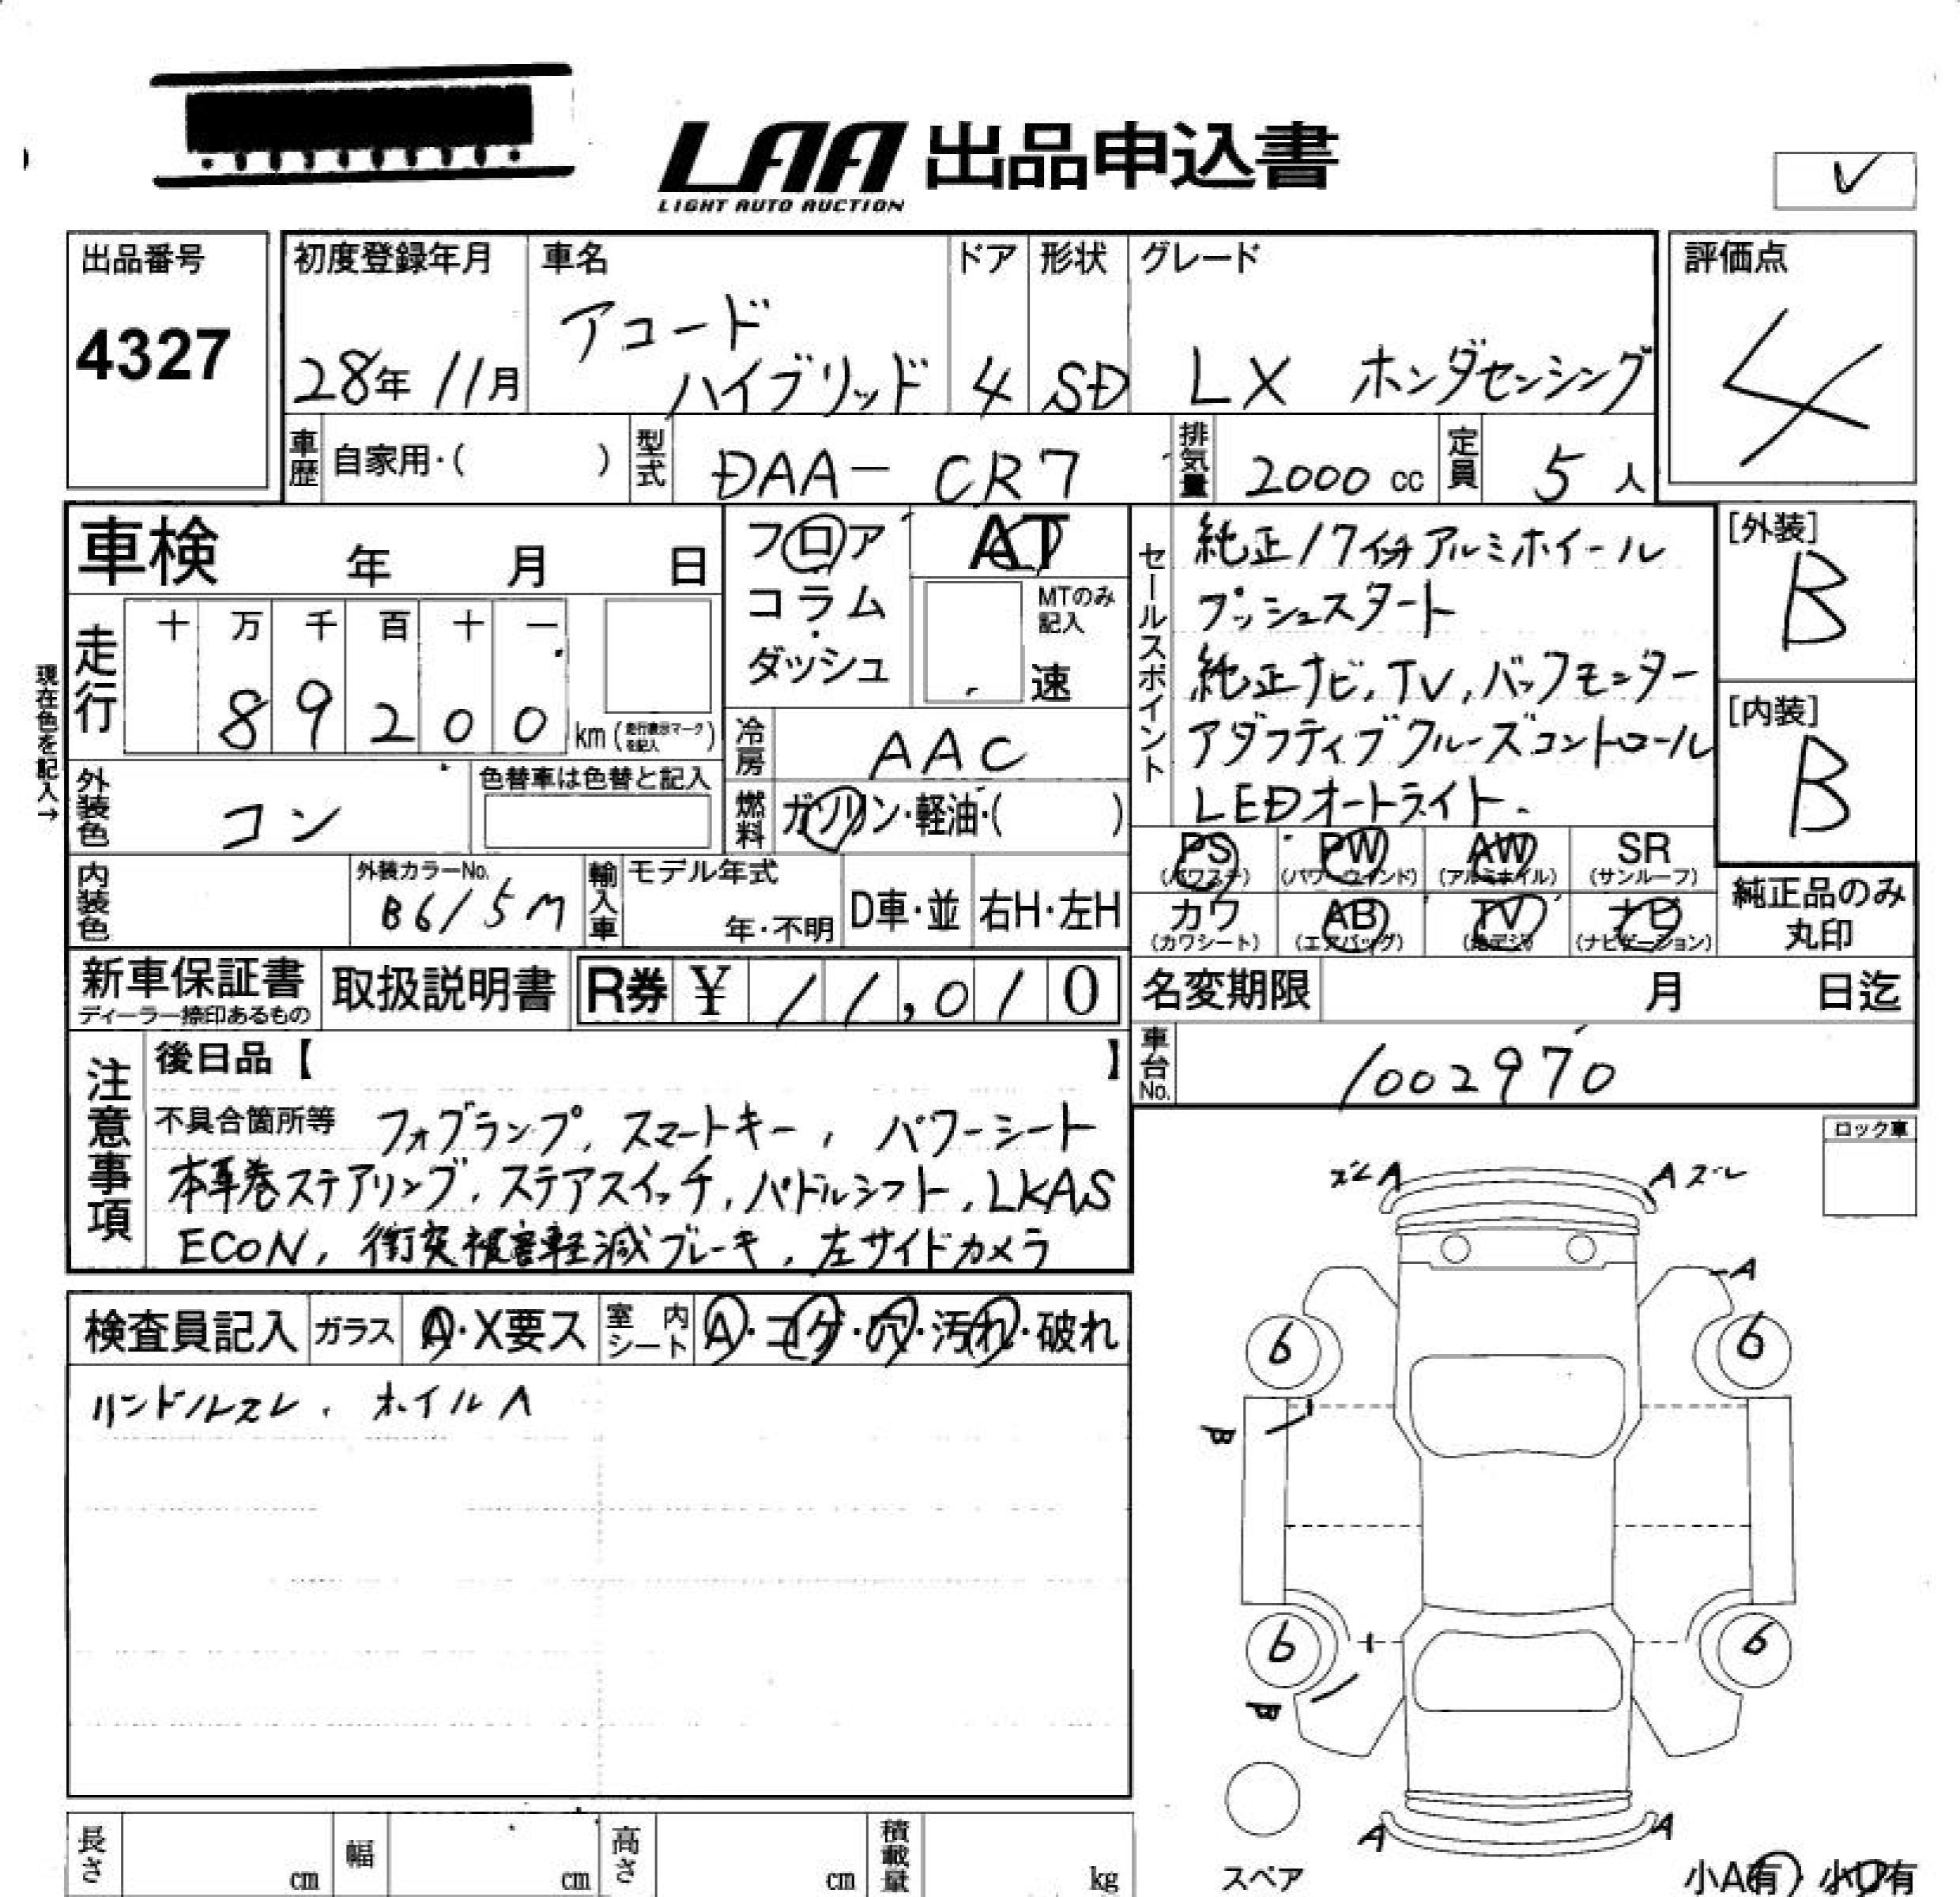 LAA 出品申込書
LIGHT AUTO AUCTION
出品番号
4327
初度登録年月
28年 11月
車名
アコード
ハイブリッド
ドア
4
形状
SD
グレード
LX ホンダセンシング
評価点
4
車歴 自家用・( )
型式 DAA- CR7
排気量 2000 cc
定員 5 人
車検 年 月 日
フロア
コラム
ダッシュ
AT
MTのみ
記入
速
走行 十 万 千 百 十 一
89200 km
現在色を記入→
冷房 AAC
燃料 ガソリン・軽油・( )
外装色 コン
色替車は色替と記入
内装色
外装カラーNo.
B615M
輸入車 モデル年式
年・不明
D車・並 右H・左H
セールスポイント
純正17インチアルミホイール
プッシュスタート
純正ナビ, TV, バックモニター
アダプティブクルーズコントロール
LEDオートライト
[外装]
B
[内装]
B
PS PW AW SR
(パワステ) (パワーウインド) (アルミホイル) (サンルーフ)
カワ AB TV ナビ
(カワシート) (エアバッグ) (地デジ) (ナビゲーション)
純正品のみ
丸印
新車保証書
ディーラー捺印あるもの
取扱説明書
R券 ¥ 11,010
名変期限 月 日迄
車台No. 1002970
注意事項
後日品【 】
不具合箇所等 フォグランプ, スマートキー, パワーシート
本革巻ステアリング, ステアスイッチ, パドルシフト, LKAS
ECON, 衝突被害軽減ブレーキ, 左サイドカメラ
ロック車
検査員記入 ガラス A・X要ス 室内シート A・コゲ・穴・汚れ・破れ
ハンドルスレ. ホイルA
スレA
Aスレ
A
6
6
B
6
6
B
A
A
スペア
小A有・小U有
長さ cm 幅 cm 高さ cm 積載量 kg